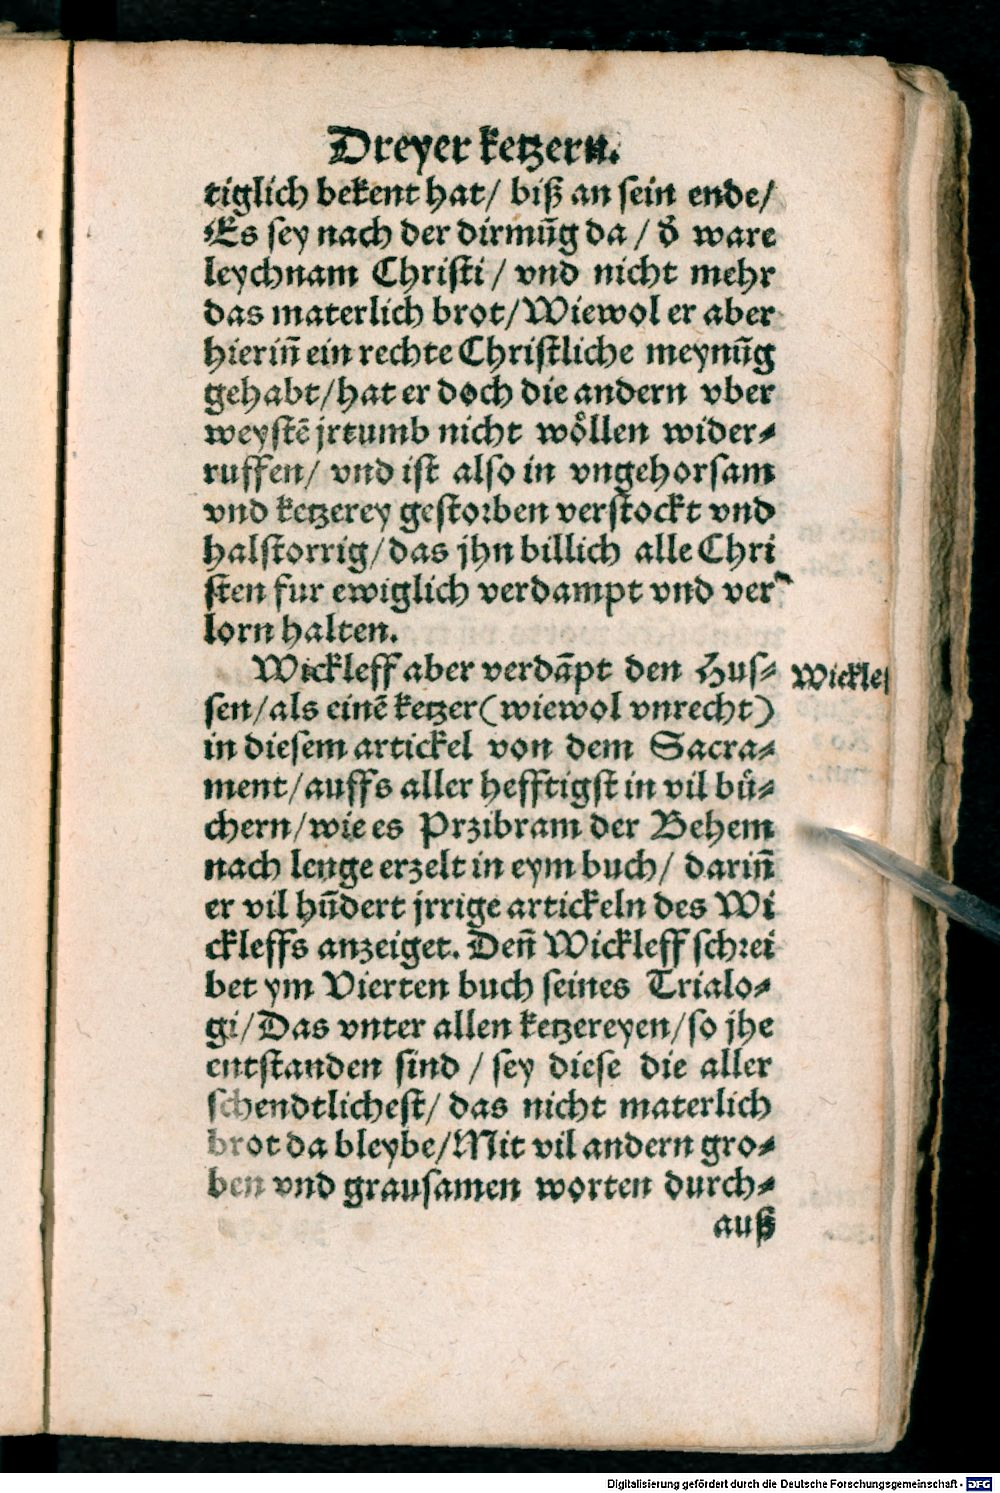 Dreyer ketzern.
tiglich bekent hat/ biß an sein ende/
Es sey nach der dirmūg da / d̄ ware
leychnam Christi / vnd nicht mehr
das materlich brot/Wiewol er aber
hierin̄ ein rechte Christliche meynūg
gehabt/hat er doch die andern vber
weystē jrtumb nicht wöllen wider⸗
ruffen/ vnd ist also in vngehorsam
vnd ketzerey gestorben verstockt vnd
halstorrig/das jhn billich alle Chri
sten fur ewiglich verdampt vnd ver⸗
lorn halten.
Wickleff aber verdāpt den Hus⸗
sen/als einē ketzer(wiewol vnrecht)
in diesem artickel von dem Sacra⸗
ment/auffs aller hefftigst in vil bü⸗
chern/wie es Przibram der Behem
nach lenge erzelt in eym buch/ darin̄
er vil hūdert jrrige artickeln des Wi
ckleffs anzeiget. Den̄ Wickleff schrei
bet ym Vierten buch seines Trialo⸗
gi/Das vnter allen ketzereyen/so jhe
entstanden sind / sey diese die aller
schendtlichest/ das nicht materlich
brot da bleybe/Mit vil andern gro⸗
ben vnd grausamen worten durch⸗
auß
Wickle
Digitalisierung gefördert durch die Deutsche Forschungsgemeinschaft - DFG